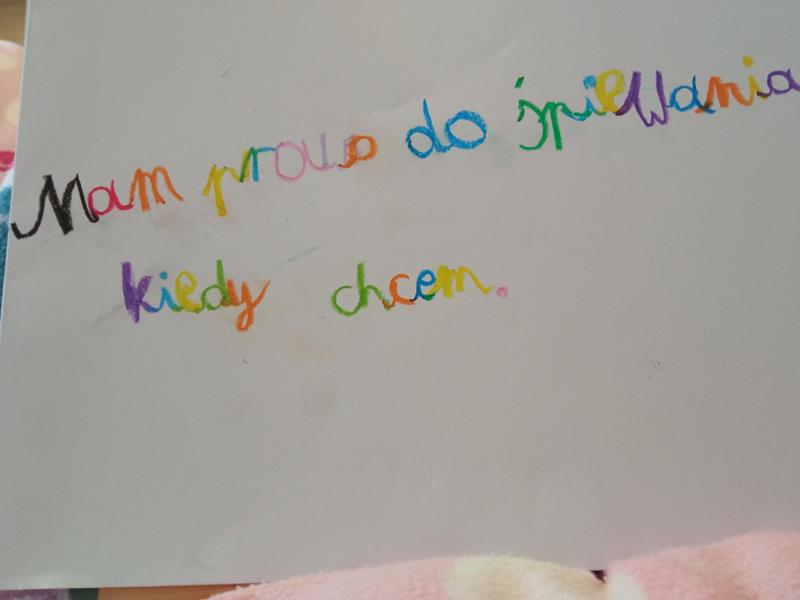 Mam prawo do śpiewania
kiedy chcem.